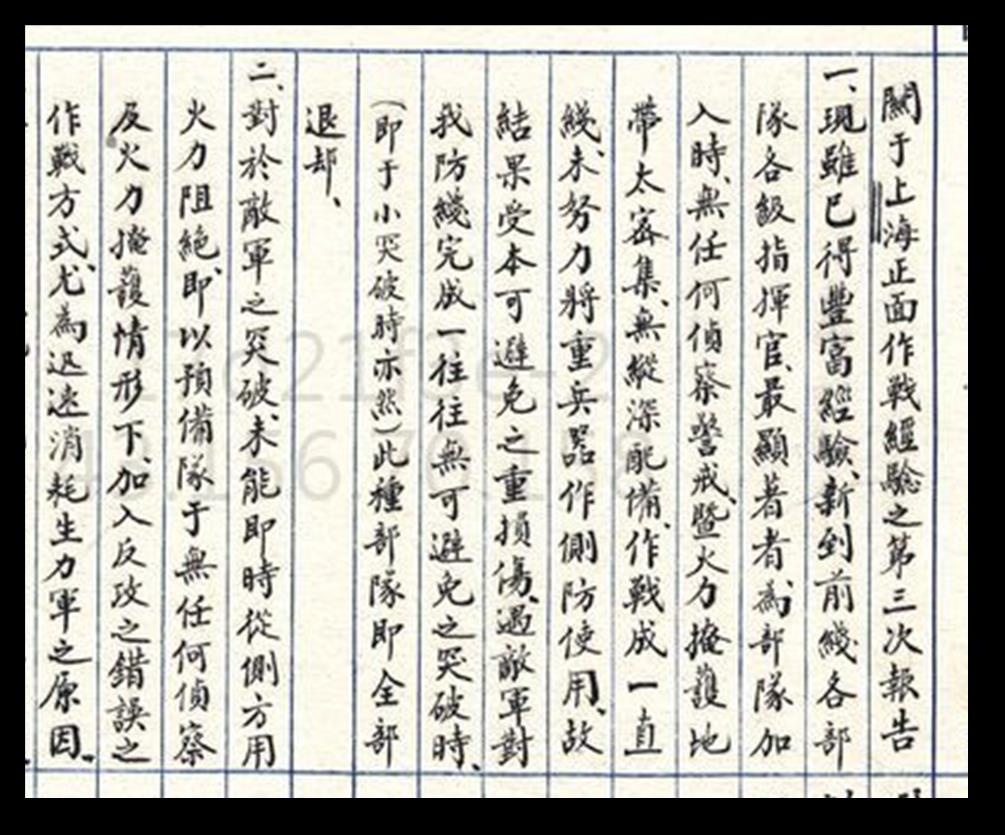 關于上海正面作戰經驗之第三次報告
一、現雖已得豐富經驗、新到前綫各部
隊各級指揮官、最顯著者為部隊加
入時、無任何偵察警戒、暨火力掩護地
帶太密集、無縱深配備、作戰成一直
綫、未努力將重兵器作側防使用、故
結果受本可避免之重損傷、遇敵軍對
我防綫完成一往往無可避免之突破時、
(即于小突破時亦然)此種部隊即全部
退却、
二、對於敵軍之突破、未能即時從側方用
火力阻絕、即以預備隊于無任何偵察
及火力掩護情形下、加入反攻之錯誤之
作戰方式、尤為迅速消耗生力軍之原因、